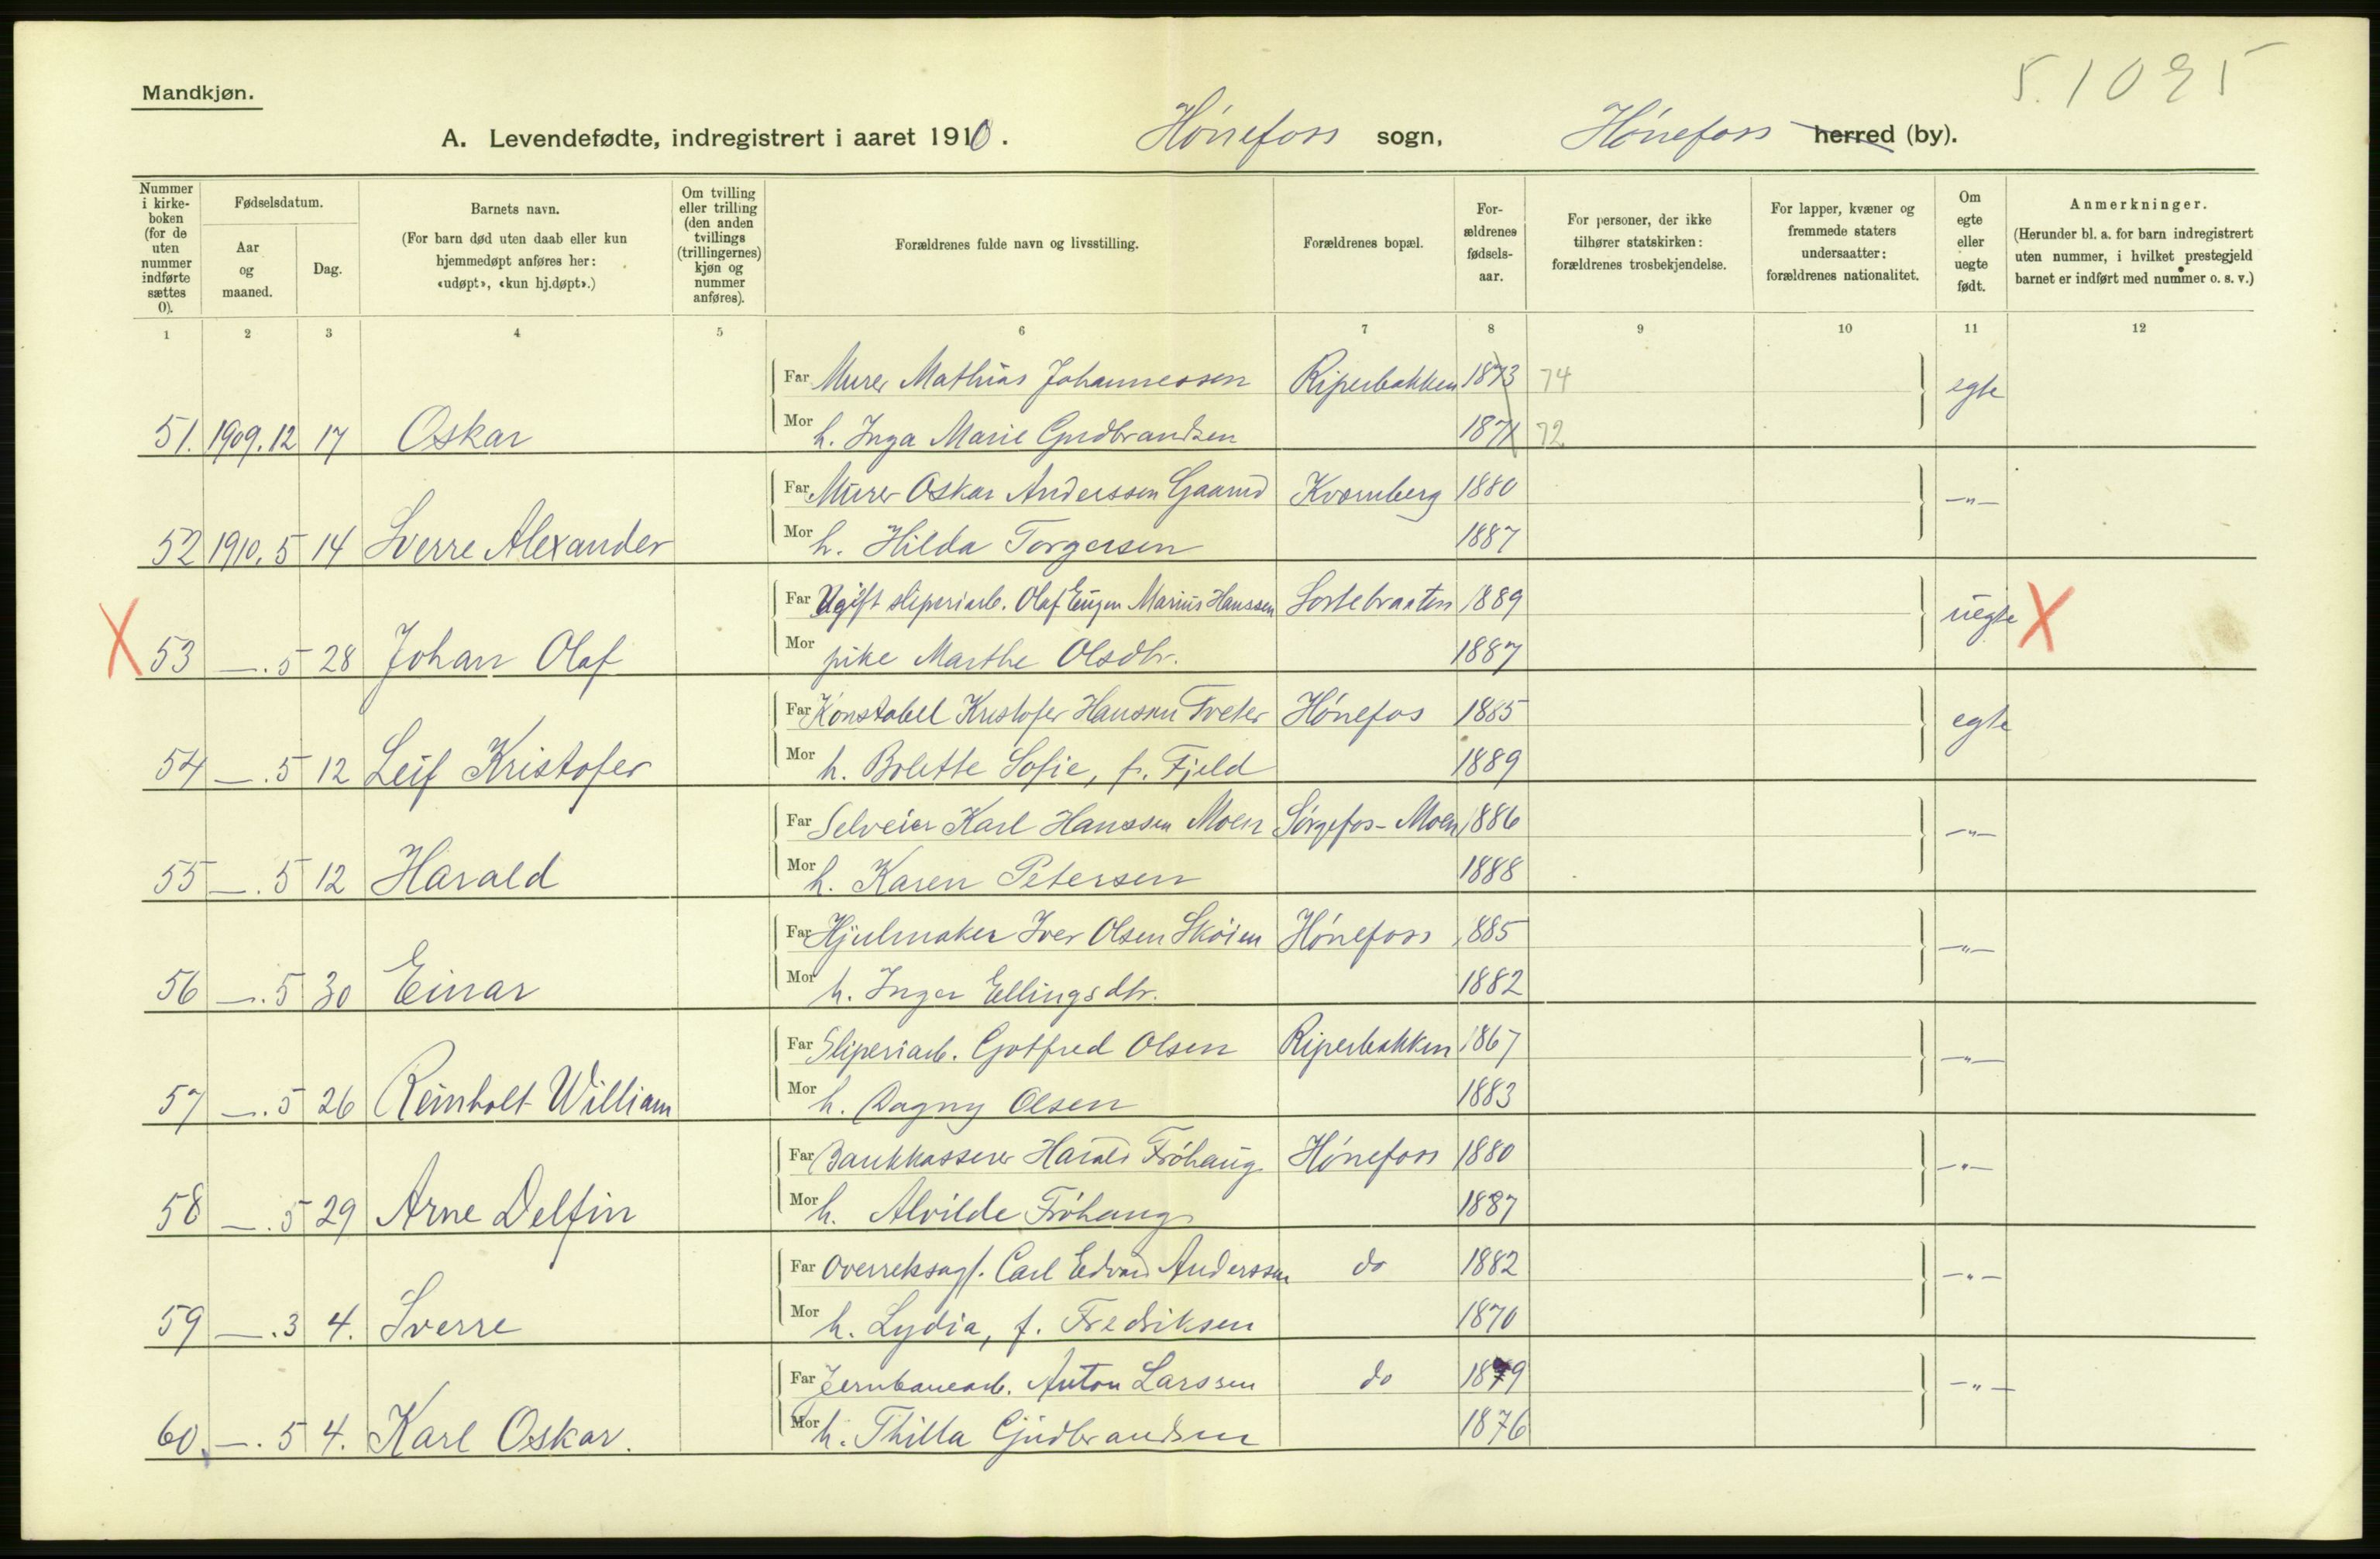 5.1095
Mandkjøn.
A. Levendefødte, indregistrert i aaret 1910. Hönefoss sogn, Hönefoss herred (by).
Nummer i kirkeboken (for de uten nummer indførte sættes 0).
Fødselsdatum.
Aar og maaned.
Dag.
Barnets navn.
(For barn død uten daab eller kun hjemmedøpt anføres her: «udøpt», «kun hj.døpt».)
Om tvilling eller trilling (den anden tvillings (trillingernes) kjøn og nummer anføres).
Forældrenes fulde navn og livsstilling.
Forældrenes bopæl.
Forældrenes fødselsaar.
For personer, der ikke tilhører statskirken: forældrenes trosbekjendelse.
For lapper, kvæner og fremmede staters undersaatter: forældrenes nationalitet.
Om egte eller uegte født.
Anmerkninger.
(Herunder bl. a. for barn indregistrert uten nummer, i hvilket prestegjeld barnet er indført med nummer o. s. v.)
1 2 3 4 5 6 7 8 9 10 11 12
Far Murer Mathias Johannessen Riperbakken 1873 74 egte
51. 1909. 12 17 Oskar Mor h. Inga Marie Gudbrandsen 1871 72
Far Murer Oskar Anderssen Gaarud Kvernberg 1880 —"—
52 1910. 5 14 Sverre Alexander Mor h. Hilda Torgersen 1887
Far Ugift sliperiarb. Olaf Eugen Marius Hanssen Sortebraaten 1889 uegte X
X 53 —. 5 28 Johan Olaf Mor pike Marthe Olsdtr. 1887
Far Konstabel Kristofer Hansen Tveter Hönefos 1885 egte
54 —. 5 12 Leif Kristofer Mor h. Bolette Sofie, f. Fjeld 1889
Far Selveier Karl Hanssen Moen Sörgefos-Moen 1886 —"—
55 —. 5 12 Harald Mor h. Karen Petersen 1888
Far Hjulmaker Iver Olsen Sköien Hönefoss 1885 —"—
56 —. 5 30 Einar Mor h. Inger Ellingsdtr. 1882
Far Sliperiarb. Gotfred Olsen Riperbakken 1867 —"—
57 —. 5 26 Reinholt William Mor h. Dagny Olsen 1883
Far Bankkasserer Harald Fröhaug Hönefoss 1880 —"—
58 —. 5 29 Arne Delfin Mor h. Alvilde Fröhaug 1887
Far Overretssagf. Carl Edvard Anderssen do 1882 —"—
59 —. 3 4. Sverre Mor h. Lydia, f. Fredriksen 1870
Far Jernbanearb. Anton Larssen do 1879 —"—
60. —. 5 4. Karl Oskar. Mor h. Thilla Gudbrandsen 1876